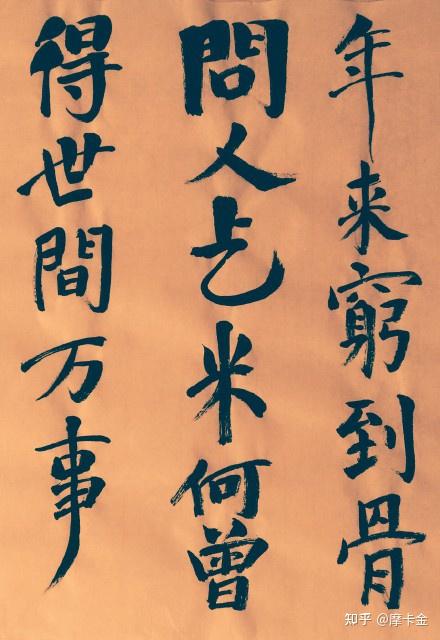 年来窮到骨
問人乞米何曾
得世間万事
知乎 @摩卡金